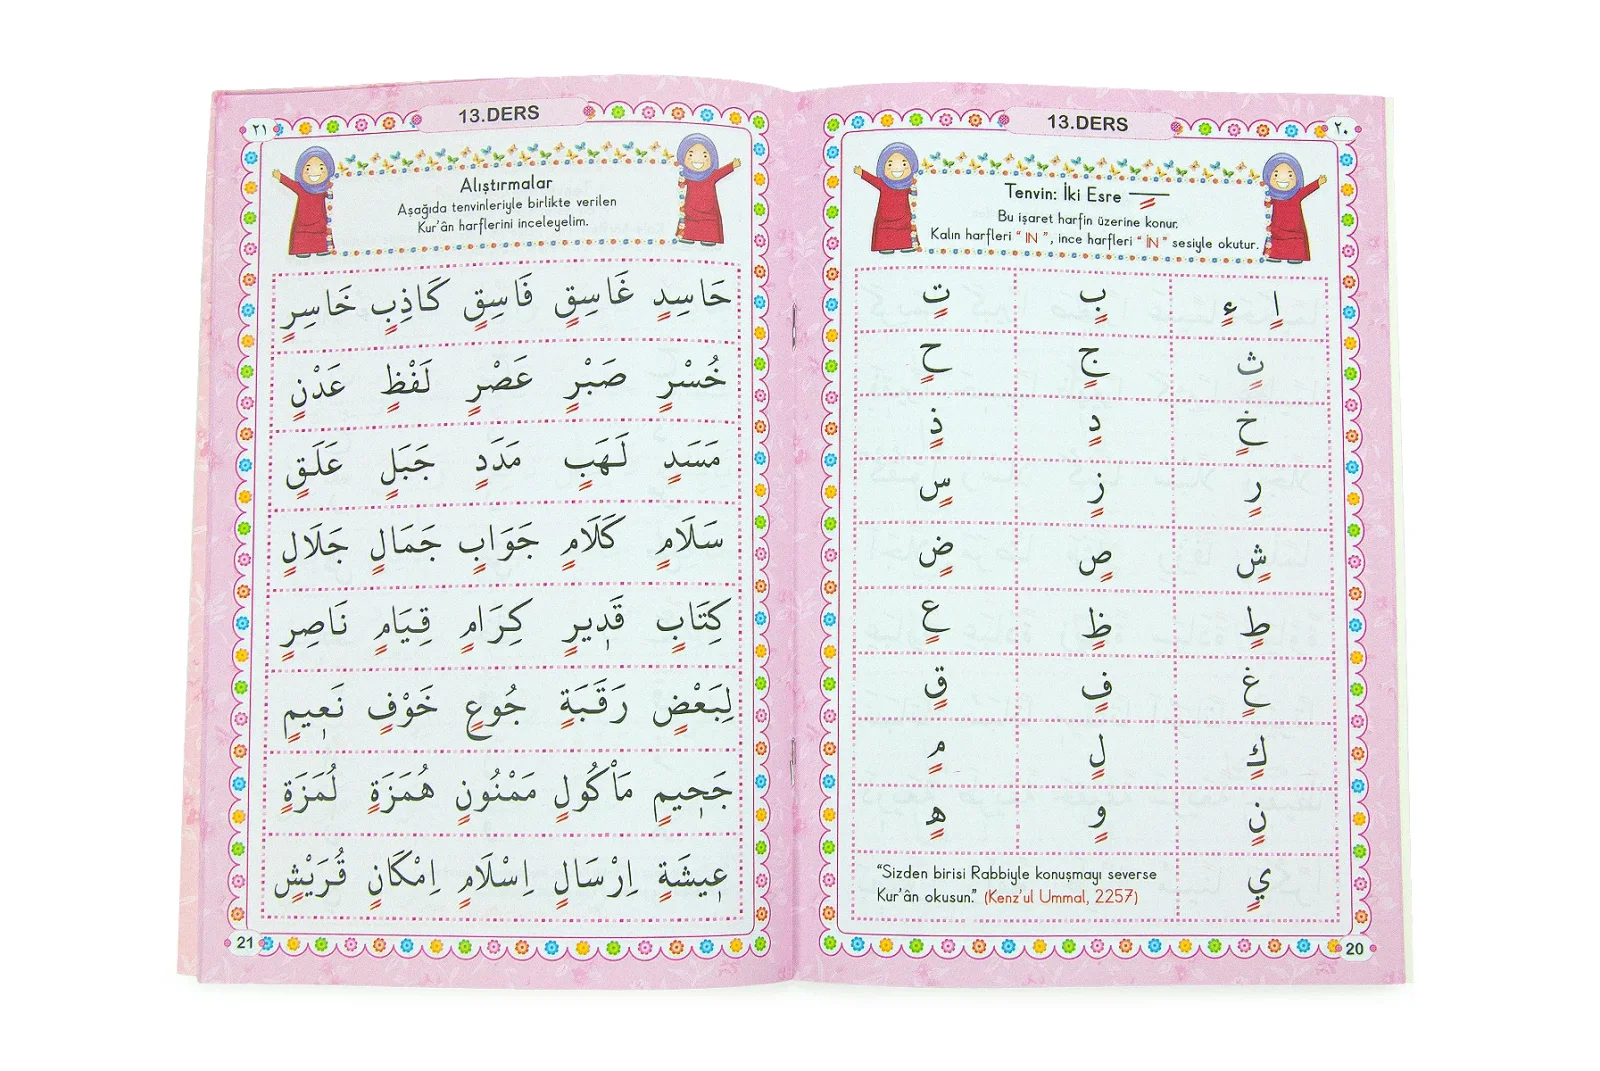 13.DERS
٢٠
Tenvin: İki Esre
Bu işaret harfin üzerine konur.
Kalın harfleri “ IN ”, ince harfleri “ İN ” sesiyle okutur.
اٍ ءٍ بٍ تٍ
ثٍ جٍ حٍ
خٍ دٍ ذٍ
رٍ زٍ سٍ
شٍ صٍ ضٍ
طٍ ظٍ عٍ
غٍ فٍ قٍ
كٍ لٍ مٍ
نٍ وٍ هٍ
يٍ
“Sizden birisi Rabbiyle konuşmayı severse
Kur’ân okusun.” (Kenz’ul Ummal, 2257)
20
13.DERS
٢١
Alıştırmalar
Aşağıda tenvinleriyle birlikte verilen
Kur’ân harflerini inceleyelim.
حَاسِدٍ غَاسِقٍ فَاسِقٍ كَاذِبٍ خَاسِرٍ
خُسْرٍ صَبْرٍ عَصْرٍ لَفْظٍ عَدْنٍ
مَسَدٍ لَهَبٍ مَدَدٍ جَبَلٍ عَلَقٍ
سَلَامٍ كَلَامٍ جَوَابٍ جَمَالٍ جَلَالٍ
كِتَابٍ قَدٖيرٍ كِرَامٍ قِيَامٍ نَاصِرٍ
لِبَعْضٍ رَقَبَةٍ جُوعٍ خَوْفٍ نَعٖيمٍ
جَحٖيمٍ مَاْكُولٍ مَمْنُونٍ هُمَزَةٍ لُمَزَةٍ
عٖيشَةٍ اِرْسَالٍ اِسْلَامٍ اِمْكَانٍ قُرَيْشٍ
21